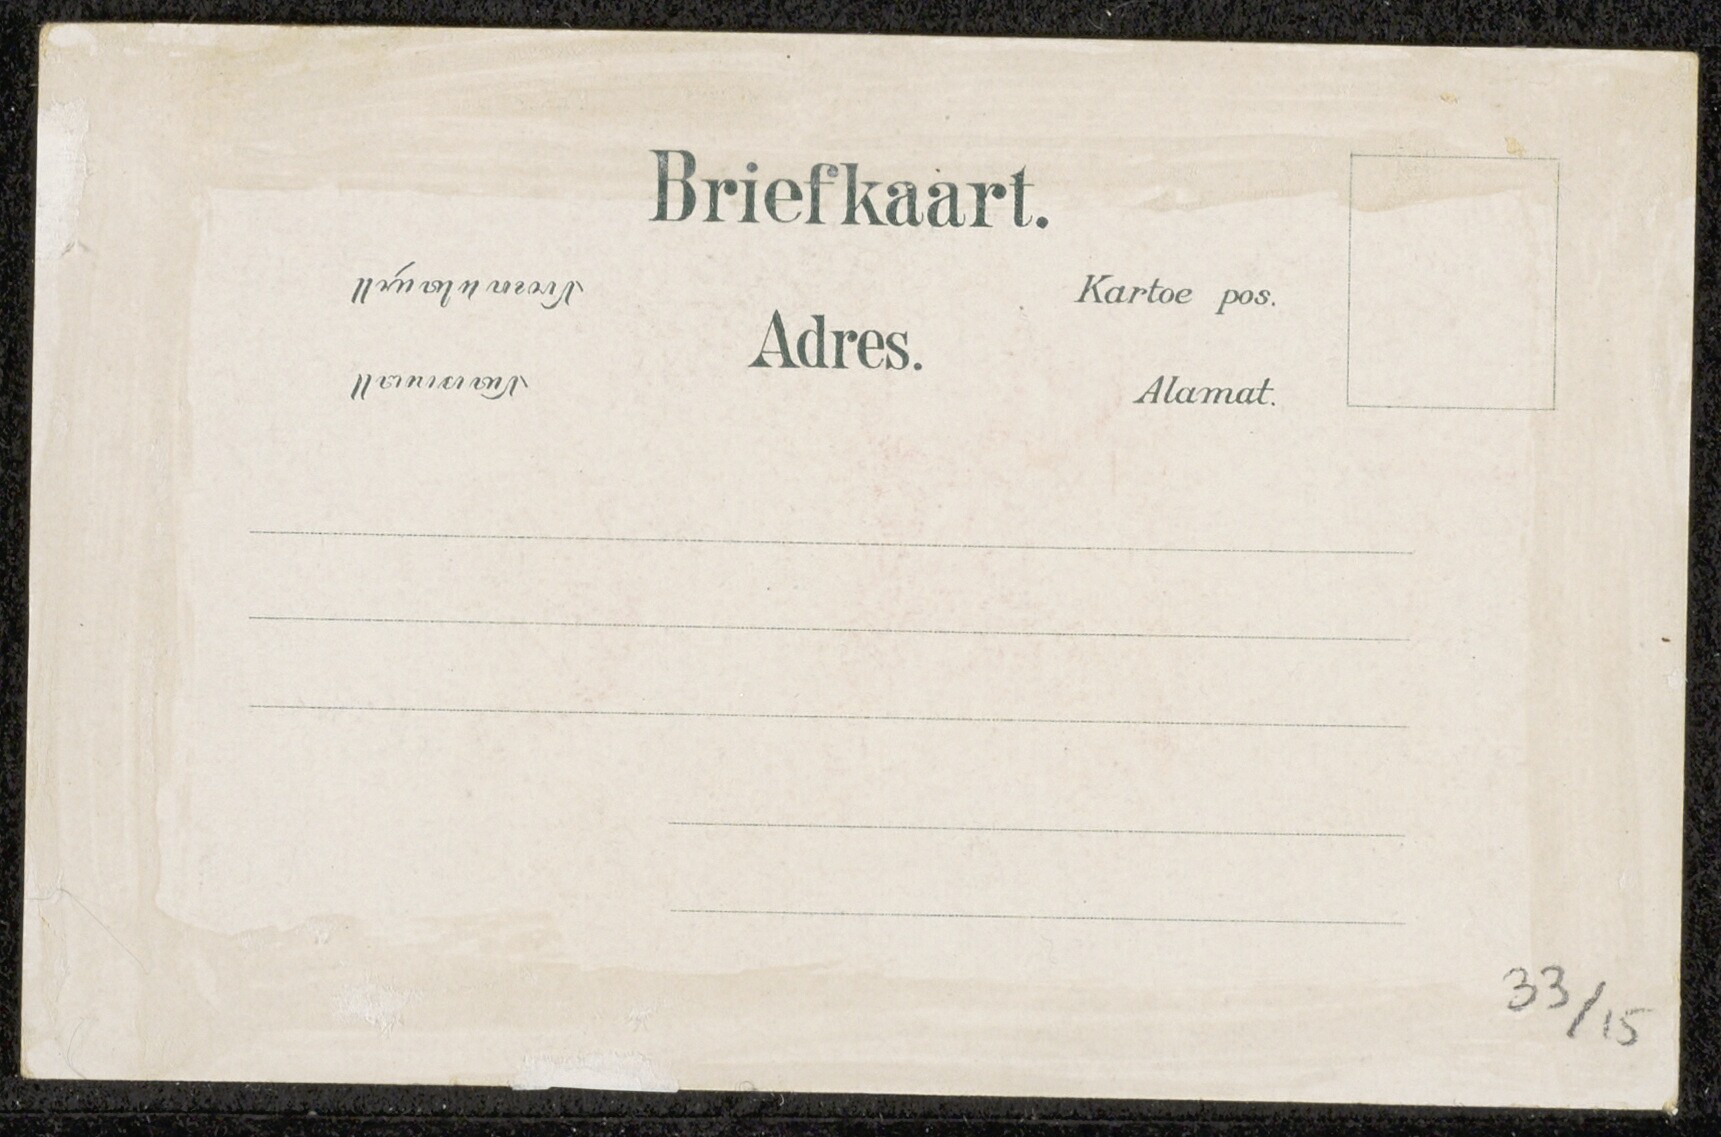 Briefkaart.
Kartoe pos.
Adres.
Alamat.
33/15